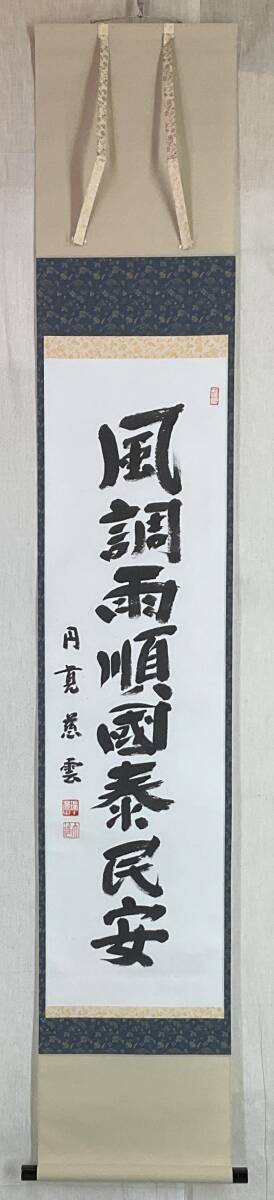 風調雨順國泰民安
円寛慈雲